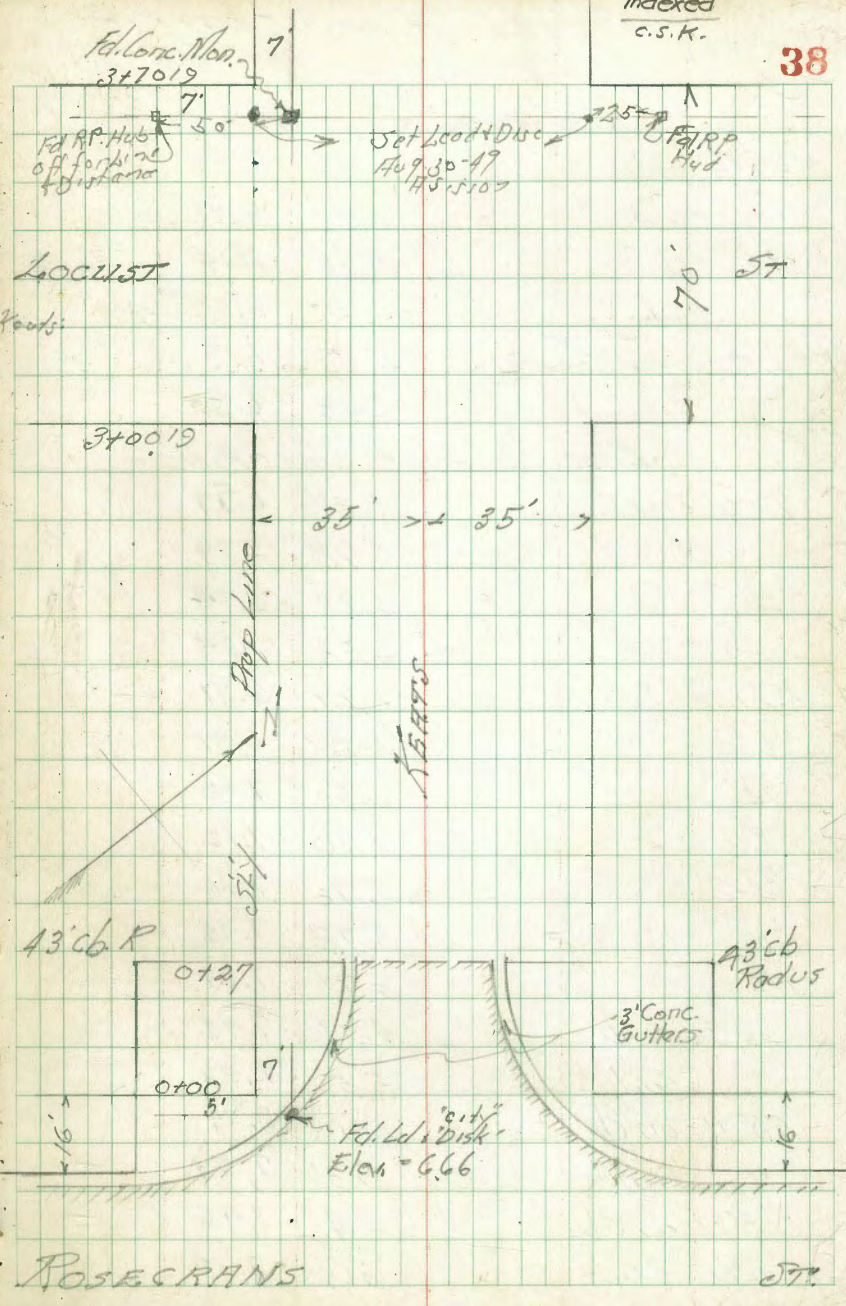 Indexed
c.s.k.
38
Fd. Conc. Mon.
7'
3+7019
7'
50'
Fd RP. Hub
off for Line
& Distance
Set Lead & Disc
Aug 30-49
25
Fd RP
Hub
LOCUST
ST
70'
3+0019
35'
35'
Prop Line
KEATS
SLY
43' cb R
0+27
43' cb
Radus
3' Conc.
Gutters
7'
0+00
5'
16'
16'
Fd. Ld. & "city" Disk
Elev. = 6.66
ROSECRANS
ST.